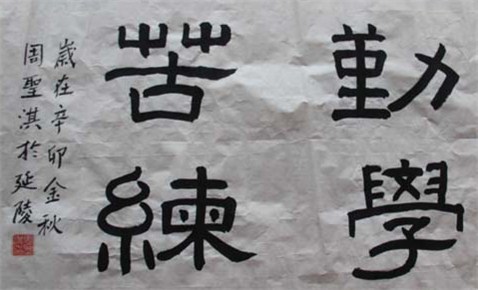 勤學
苦練
歲在辛卯金秋
周聖淇於延陵